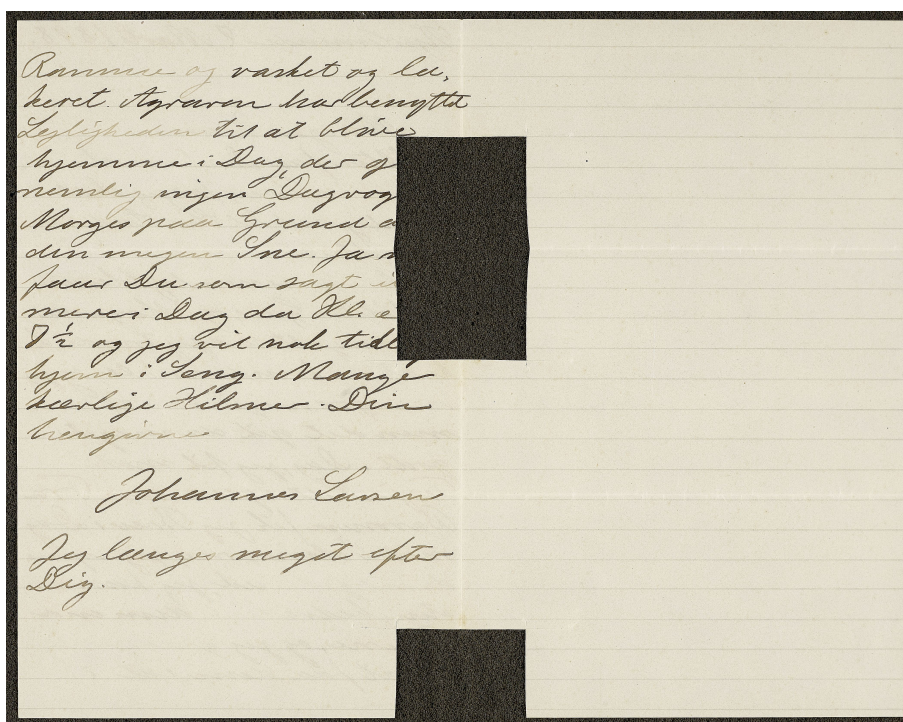 Ramme og vasket og la-
keret. Agraren har benyttet
Lejligheden til at blive
hjemme i Dag, der g
nemlig ingen Dagvog
Morges paa Grund a
den megen Sne. Ja n
faar Du som sagt i
mere i Dag da Kl. e
8 ½ og jeg vil nok tidl
hjem i Seng. Mange
kærlige Hilsner. Din
hengivne
Johannes Larsen
Jeg længes meget efter
Dig.